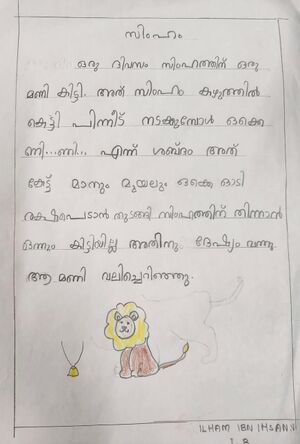 സിംഹം
ഒരു ദിവസം സിംഹത്തിന് ഒരു
മണി കിട്ടി. അത് സിംഹം കഴുത്തിൽ
കെട്ടി പിന്നീട് നടക്കുമ്പോൾ ഒക്കെ
ണി...ണി... എന്ന് ശബ്ദം അത്
കേട്ട് മാനും മുയലും ഒക്കെ ഓടി
രക്ഷപെടാൻ തുടങ്ങി സിംഹത്തിന് തിന്നാൻ
ഒന്നും കിട്ടിയില്ല അതിനു ദേഷ്യം വന്നു
ആ മണി വലിച്ചെറിഞ്ഞു.
ILHAM IBN IHSAN.V
1 B